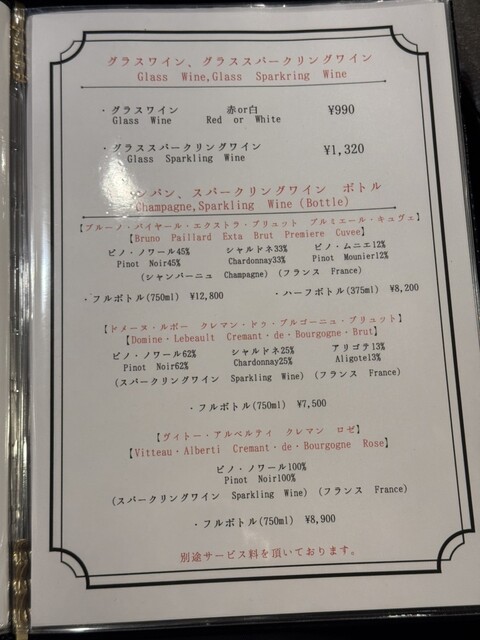 グラスワイン、グラススパークリングワイン
Glass Wine,Glass Sparkring Wine
・グラスワイン 赤or白 ¥990
Glass Wine Red or White
・グラススパークリングワイン ¥1,320
Glass Sparkling Wine
ンパン、スパークリングワイン ボトル
Champagne,Sparkling Wine(Bottle)
【ブルーノ・パイヤール・エクストラ・ブリュット プルミエール・キュヴェ】
【Bruno Paillard Exta Brut Premiere Cuvee】
ピノ・ノワール45% シャルドネ33% ピノ・ムニエ12%
Pinot Noir45% Chardonnay33% Pinot Mounier12%
(シャンパーニュ Champagne) (フランス France)
・フルボトル(750ml) ¥12,800 ・ハーフボトル(375ml) ¥8,200
【ドメーヌ・ルボー クレマン・ドゥ・ブルゴーニュ・ブリュット】
【Domine・Lebeault Cremant・de・Bourgogne・Brut】
ピノ・ノワール62% シャルドネ25% アリゴテ13%
Pinot Noir62% Chardonnay25% Aligote13%
(スパークリングワイン Sparkling Wine) (フランス France)
・フルボトル(750ml) ¥7,500
【ヴィトー・アルベルティ クレマン ロゼ】
【Vitteau・Alberti Cremant・de・Bourgogne Rose】
ピノ・ノワール100%
Pinot Noir100%
(スパークリングワイン Sparkling Wine) (フランス France)
・フルボトル(750ml) ¥8,900
別途サービス料を頂いております。